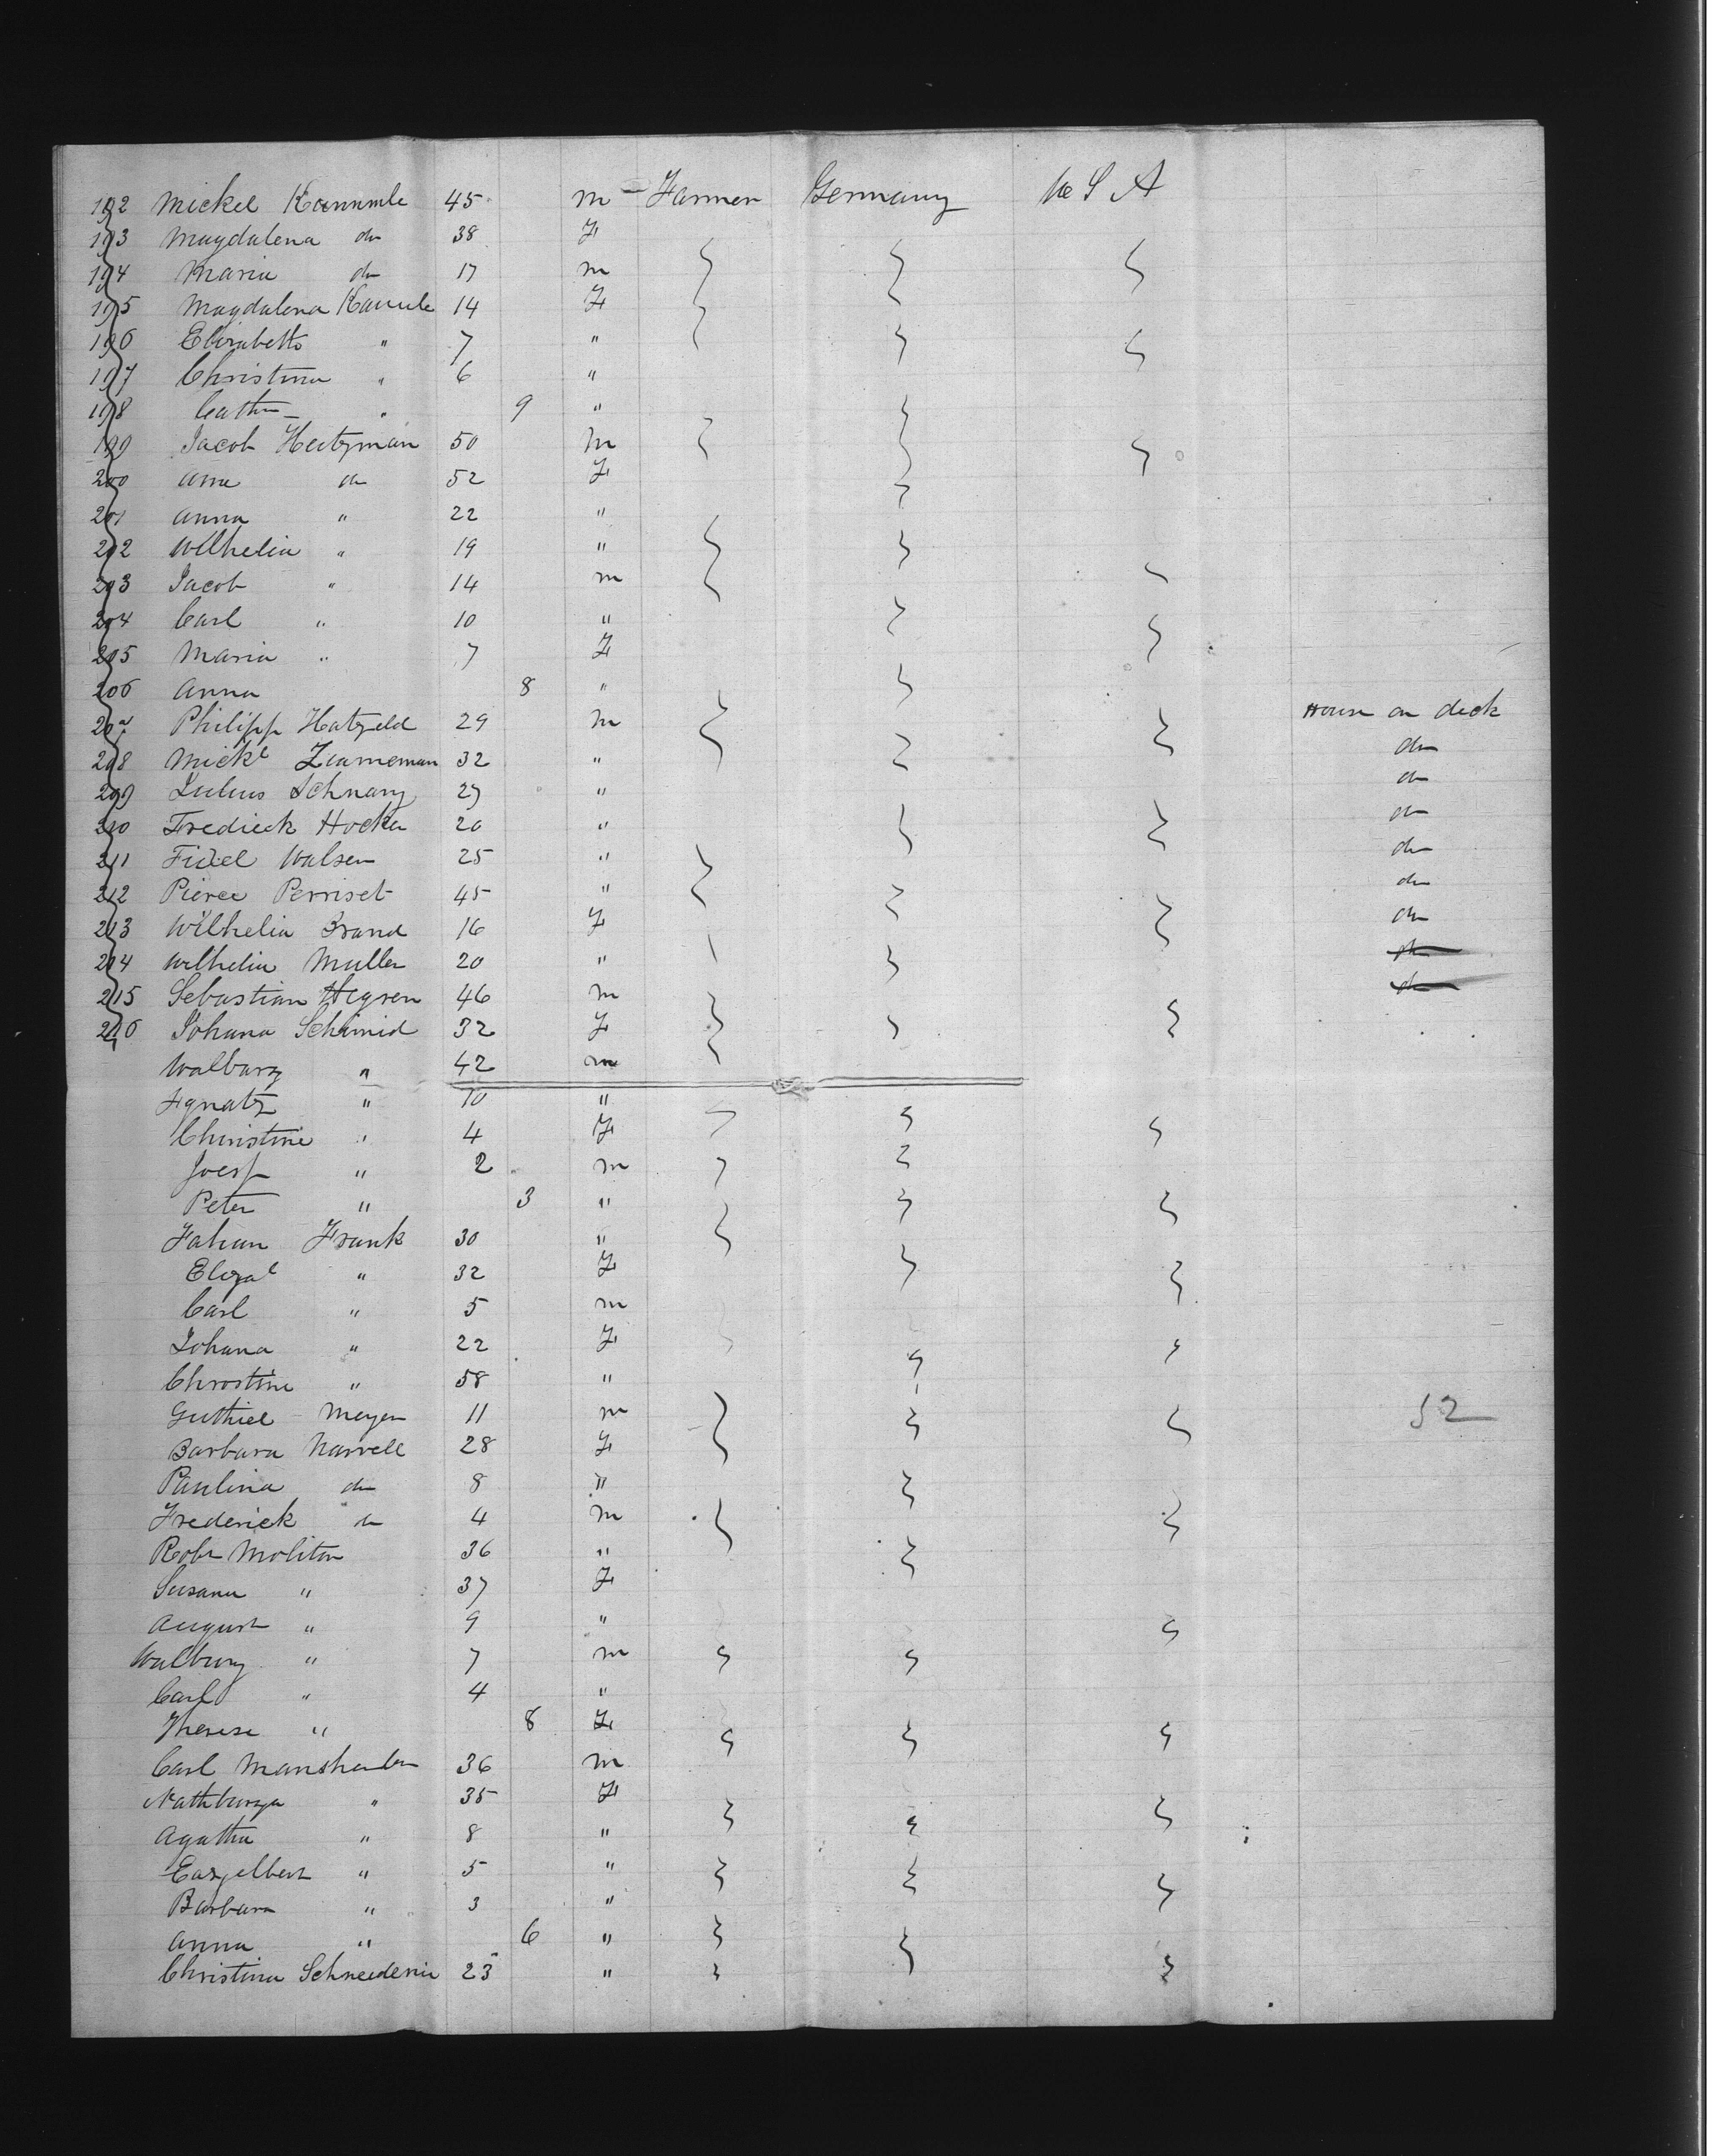 192 Mickel Kammule 45 m - Farmer Germany U S A
193 Magdalena do 38 F
194 Maria do 17 m
195 Magdalena Kamule 14 F
196 Elisabeth " 7 "
197 Christina " 6 "
198 Cath " 9 "
199 Jacob Heitzman 50 m
200 Anna do 52 F
201 Anna " 22 "
202 Wilhelia " 19 "
203 Jacob " 14 m
204 Carl " 10 "
205 Maria " 7 F
206 Anna 8 "
207 Philipp Hatzfeld 29 m House on deck
208 Mickl Zimmeman 32 " do
209 Julius Schnarz 27 " do
210 Fredieck Hocker 20 " do
211 Fidel Walser 25 " do
212 Pierce Perriset 45 " do
213 Wilhelia Brand 16 F do
214 Wilhelia Muller 20 " do
215 Sebastian Hegren 46 m do
216 Johana Schimid 32 F
Walburg " 42 m
Ignatz " 10 "
Christine " 4 F
Joesp " 2 m
Peter " 3 "
Fabian Frank 30 "
Elizal " 32 F
Carl " 5 m
Johana " 22 F
Chrostine " 58 "
Guthiel Meyer 11 m 52
Barbara Narvell 28 F
Paulina do 8 "
Frederick do 4 m
Robr Molitor 36 "
Susana " 37 F
August " 9 "
Walburg " 7 m
Carl " 4 "
Therese " 8 F
Carl 36 m
Nathburga " 35 F
Agatha " 8 "
" 5 "
Barbara " 3 "
Anna " 6 "
Christina Schneiderin 23 "